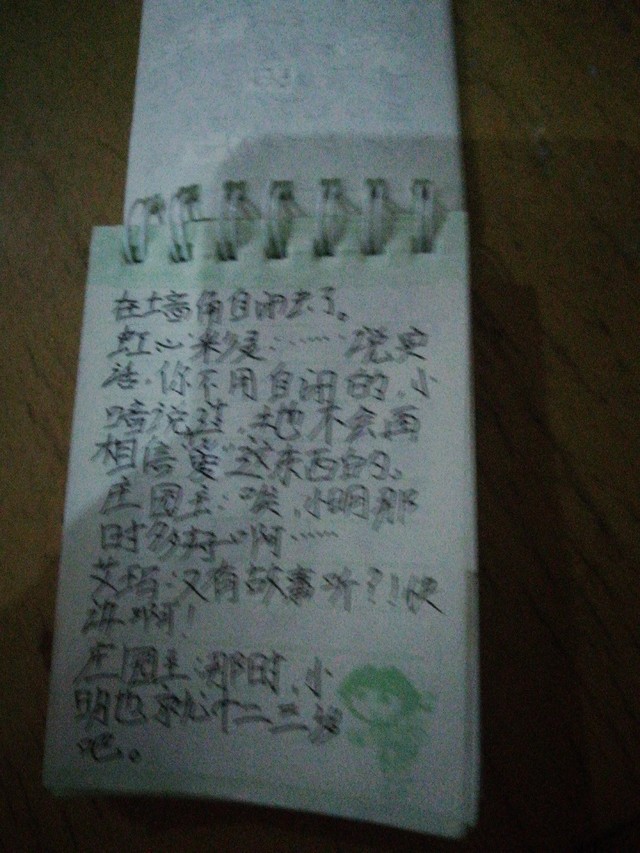 在墙角自闭去了。
虹心米缇:……说实
话,你不用自闭的,小
暗说过,她不会再
相信“爱”这东西的。
庄园主:唉,小明那
时多好心啊……
艾塔:又有故事听?!快
讲啊!
庄园主:那时,小
明也就十二三岁
吧。